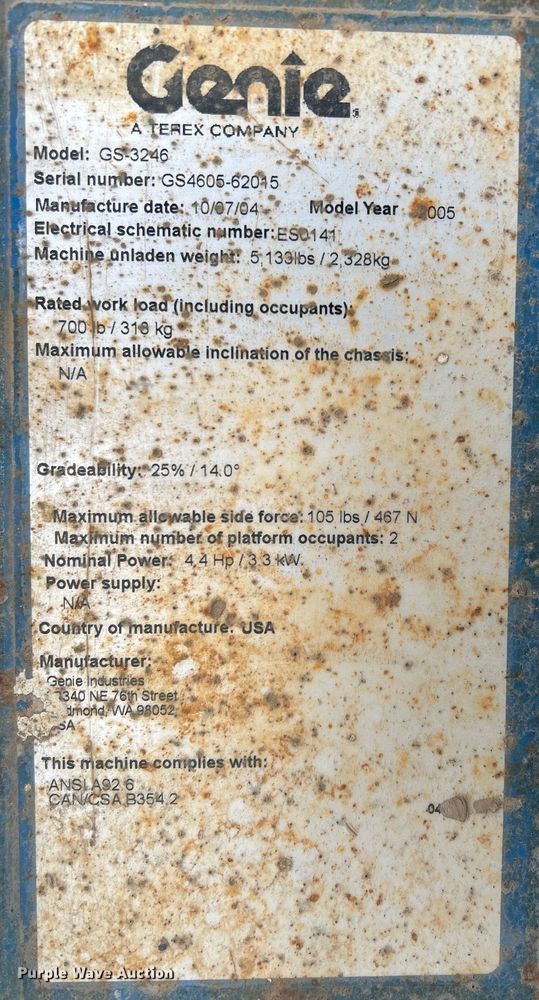 Genie
A TEREX COMPANY
Model: GS-3246
Serial number: GS4605-62015
Manufacture date: 10/07/04 Model Year 005
Electrical schematic number: ES0141
Machine unladen weight: 5,133lbs / 2,328kg
Rated work load (including occupants):
700 lb / 318 kg
Maximum allowable inclination of the chassis:
N/A
Gradeability: 25% / 14.0°
Maximum allowable side force: 105 lbs / 467 N
Maximum number of platform occupants: 2
Nominal Power: 4,4 Hp / 3.3 kW
Power supply:
N/A
Country of manufacture. USA
Manufacturer:
Genie Industries
340 NE 76th Street
dmond, WA 98052
SA
This machine complies with:
ANSI A92.6
CAN/CSA B354.2
.04
Purple Wave Auction